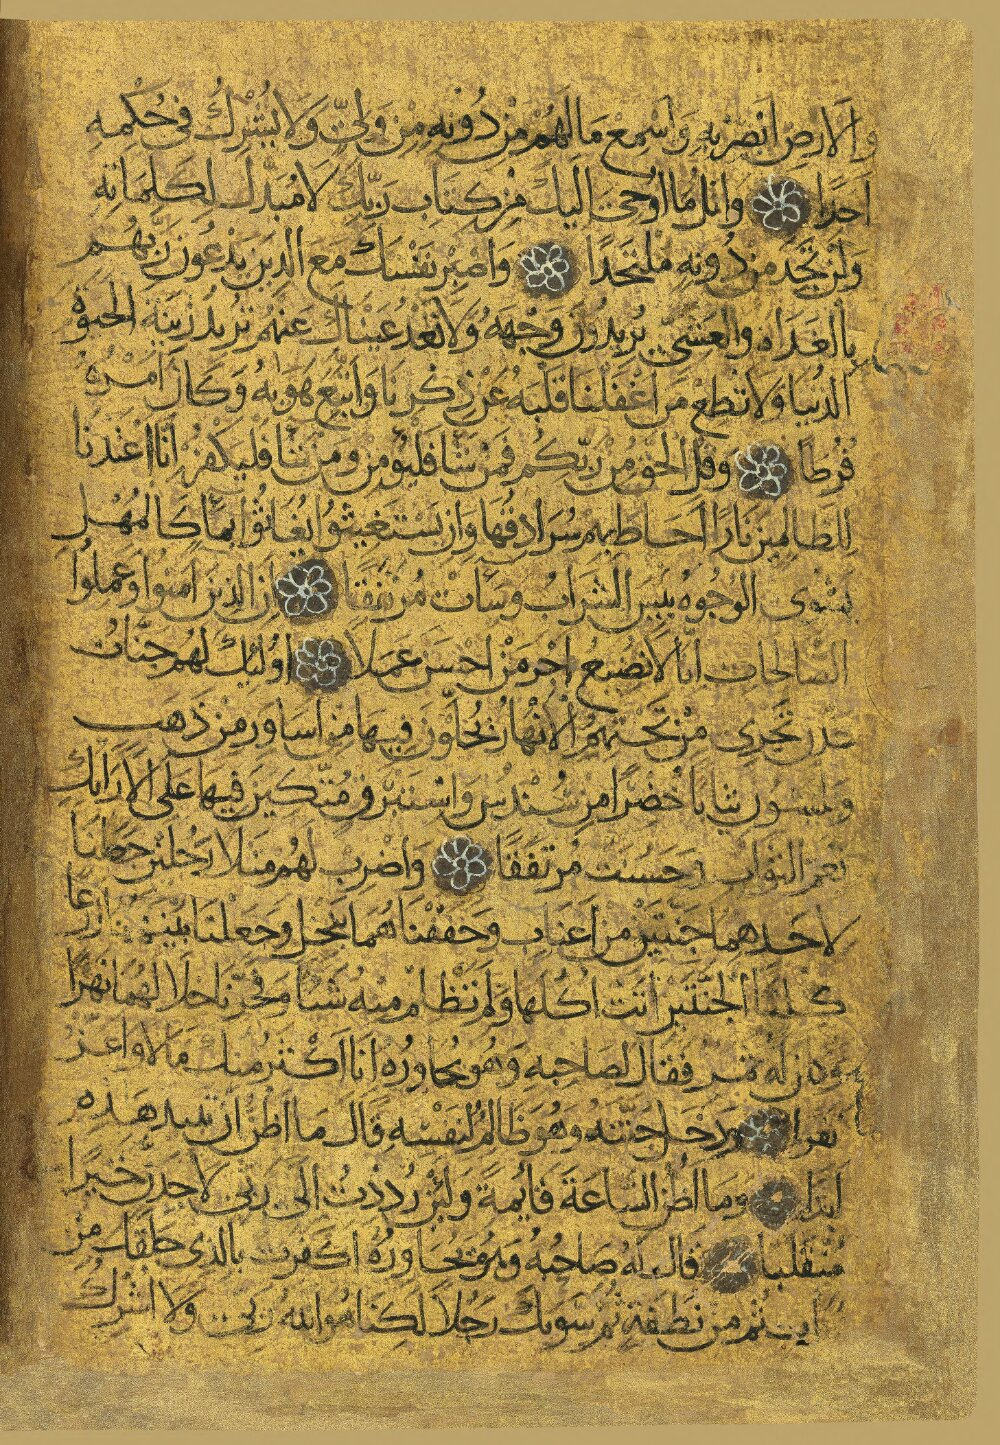 والارض ابصر به واسمع ما لهم من دونه من ولي ولا يشرك في حكمه
احدا واتل ما اوحي اليك من كتاب ربك لا مبدل لكلماته
ولن تجد من دونه ملتحدا واصبر نفسك مع الذين يدعون ربهم
بالغداة والعشي يريدون وجهه ولا تعد عيناك عنهم تريد زينة الحيوة
الدنيا ولا تطع من اغفلنا قلبه عن ذكرنا واتبع هويه وكان امره
فرطا وقل الحق من ربكم فمن شا فليومن ومن شا فليكفر انا اعتدنا
للظالمين نارا احاط بهم سرادقها وان يستغيثوا يغاثوا بما كالمهل
يشوى الوجوه بيس الشراب وسات مرتفقا ان الذين امنوا وعملوا
الصالحات انا لا نضيع اجر من احسن عملا اوليك لهم جنات
عدن تجري من تحتهم الانهار يحلون فيها من اساور من ذهب
ويلبسون ثيابا خضرا من سندس واستبرق متكين فيها على الارايك
نعم الثواب وحسنت مرتفقا واضرب لهم مثلا رجلين جعلنا
لاحدهما جنتين من اعناب وحففناهما بنخل وجعلنا بينهما زرعا
كلتا الجنتين اتت اكلها ولم تظلم منه شيا وفجرنا خلالهما نهرا
وكان له ثمر فقال لصاحبه وهو يحاوره انا اكثر منك مالا واعز
نفرا ودخل جنته وهو ظالم لنفسه قال ما اظن ان تبيد هذه
ابدا وما اظن الساعة قايمة ولين رددت الى ربي لاجدن خيرا
منقلبا قال له صاحبه وهو يحاوره اكفرت بالذي خلقك من
ثم من نطفة ثم سويك رجلا لكنا هو الله ربي ولا اشرك